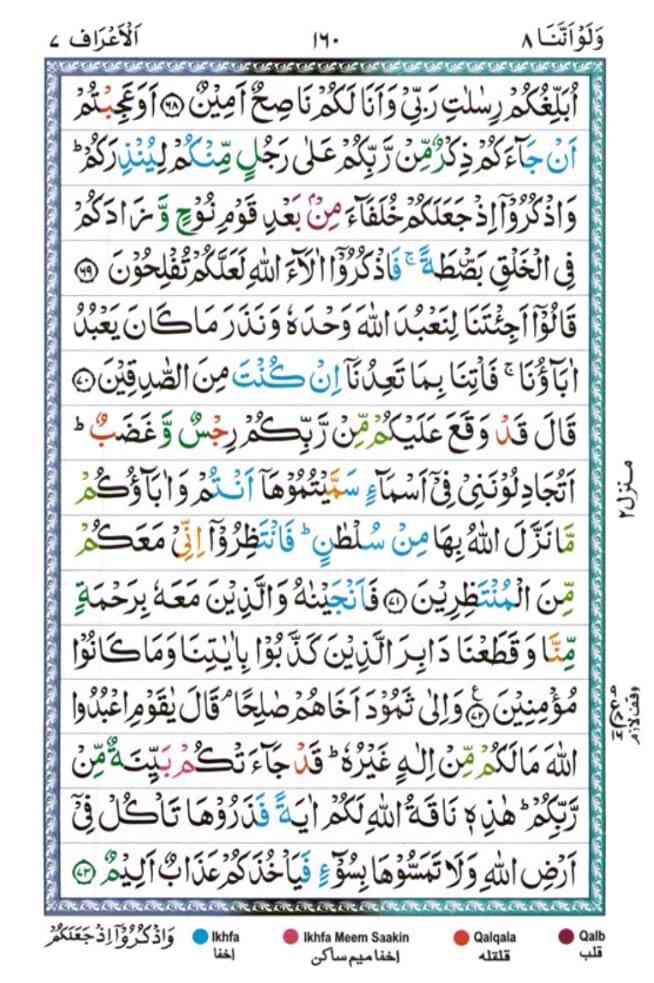 وَلَوْ اَنَّنَا ٨ ١٦٠ اَلْاَعْرَاف ٧
اُبَلِّغُكُمْ رِسٰلٰتِ رَبِّىْ وَاَنَا لَكُمْ نَاصِحٌ اَمِيْنٌ ﴿٦٨﴾ اَوَعَجِبْتُمْ
اَنْ جَآءَكُمْ ذِكْرٌ مِّنْ رَّبِّكُمْ عَلٰى رَجُلٍ مِّنْكُمْ لِيُنْذِرَكُمْ ؕ
وَاذْكُرُوْۤا اِذْ جَعَلَكُمْ خُلَفَآءَ مِنْۢ بَعْدِ قَوْمِ نُوْحٍ وَّ زَادَكُمْ
فِى الْخَلْقِ بَصْۜطَةً ۚ فَاذْكُرُوْۤا اٰلَآءَ اللّٰهِ لَعَلَّكُمْ تُفْلِحُوْنَ ﴿٦٩﴾
قَالُوْۤا اَجِئْتَنَا لِنَعْبُدَ اللّٰهَ وَحْدَهٗ وَنَذَرَ مَا كَانَ يَعْبُدُ
اٰبَآؤُنَا ۚ فَاْتِنَا بِمَا تَعِدُنَاۤ اِنْ كُنْتَ مِنَ الصّٰدِقِيْنَ ﴿٧٠﴾
قَالَ قَدْ وَقَعَ عَلَيْكُمْ مِّنْ رَّبِّكُمْ رِجْسٌ وَّغَضَبٌ ؕ
اَتُجَادِلُوْنَنِىْ فِىْۤ اَسْمَآءٍ سَمَّيْتُمُوْهَاۤ اَنْتُمْ وَاٰبَآؤُكُمْ
مَّا نَزَّلَ اللّٰهُ بِهَا مِنْ سُلْطٰنٍ ؕ فَانْتَظِرُوْۤا اِنِّىْ مَعَكُمْ
مِّنَ الْمُنْتَظِرِيْنَ ﴿٧١﴾ فَاَنْجَيْنٰهُ وَالَّذِيْنَ مَعَهٗ بِرَحْمَةٍ
مِّنَّا وَ قَطَعْنَا دَابِرَ الَّذِيْنَ كَذَّبُوْا بِاٰيٰتِنَا وَمَا كَانُوْا
مُؤْمِنِيْنَ ﴿٧٢﴾ ع وَاِلٰى ثَمُوْدَ اَخَاهُمْ صٰلِحًا ۘ قَالَ يٰقَوْمِ اعْبُدُوا
اللّٰهَ مَا لَكُمْ مِّنْ اِلٰهٍ غَيْرُهٗ ؕ قَدْ جَآءَتْكُمْ بَيِّنَةٌ مِّنْ
رَّبِّكُمْ ؕ هٰذِهٖ نَاقَةُ اللّٰهِ لَكُمْ اٰيَةً فَذَرُوْهَا تَاْكُلْ فِىْۤ
اَرْضِ اللّٰهِ وَلَا تَمَسُّوْهَا بِسُوْٓءٍ فَيَاْخُذَكُمْ عَذَابٌ اَلِيْمٌ ﴿٧٣﴾
منزل ٢
وقف لازم
وَاذْكُرُوْۤا اِذْ جَعَلَكُمْ
Ikhfa Ikhfa Meem Saakin Qalqala Qalb
اخفا اخفا میم ساکن قلقلہ قلب